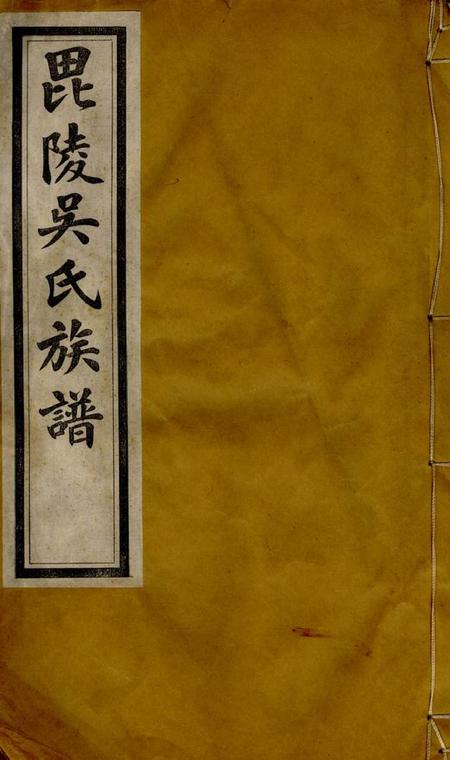 毘陵吳氏族譜